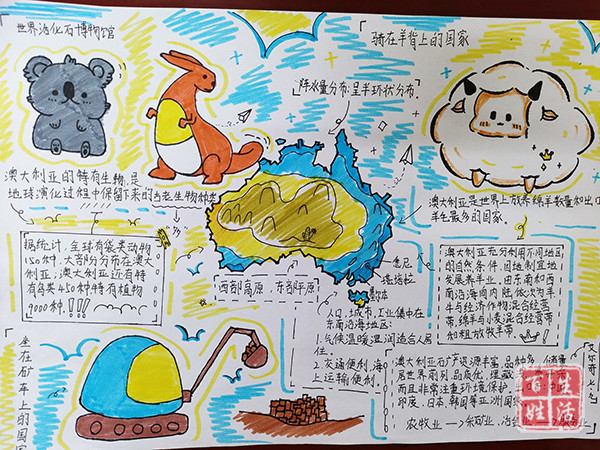 世界活化石博物馆
骑在羊背上的国家
降水量分布:呈半环状分布.
澳大利亚的特有生物,是
地球演化过程中保留下来的古老生物种类
澳大利亚是世界上放养绵羊数量和出口
羊毛最多的国家.
据统计,全球有袋类动物
150余种.大部分分布在澳大
利亚;澳大利亚还有特
有鸟类450种,特有植物
9000种.!!!
西部高原、东部平原
悉尼
堪培拉
墨尔本
人口,城市,工业集中在
东南沿海地区:
1.气候温暖湿润适合人居
住.
2.交通便利,海
上运输便利.
澳大利亚充分利用不同地区
的自然条件,因地制宜地
发展养羊业,由东南和西
南沿海向内陆,依次为羊
牛与经济作物混合经营
带,绵羊与小麦混合经营带
和粗放牧羊带
坐在矿车上的国
澳大利亚矿产资源丰富,品种多,储量
居世界前列,品质优,埋藏
而且非常注重环境保护,
印度、日本、韩国等亚洲国
农牧业 → 采矿业、冶
百姓生活